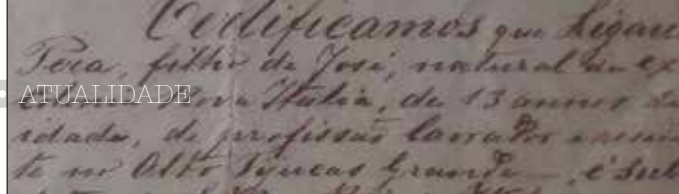 Certificamos que Ligan
Pera, filho de José, natural da ex
Nova Italia, de 13 annos de
idade, de profissão lavrador e resi
te no Alto Tijucas Grande, é sub
ATUALIDADE